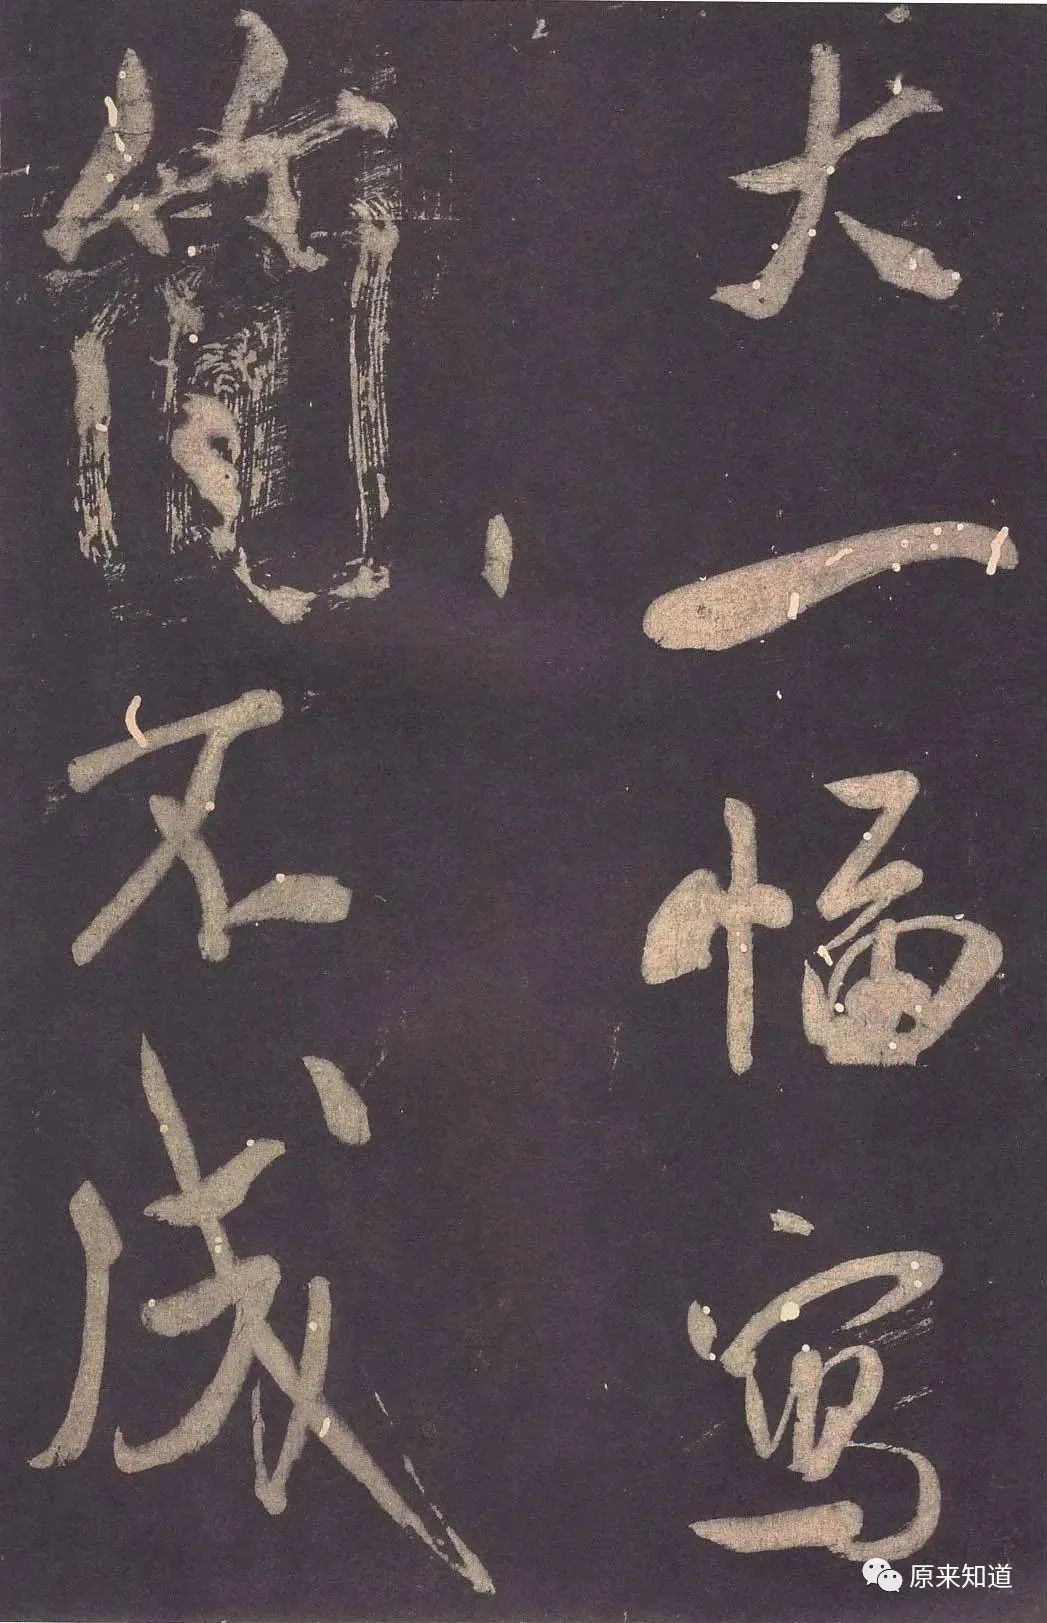 大一幅寫
簡不成
原来知道